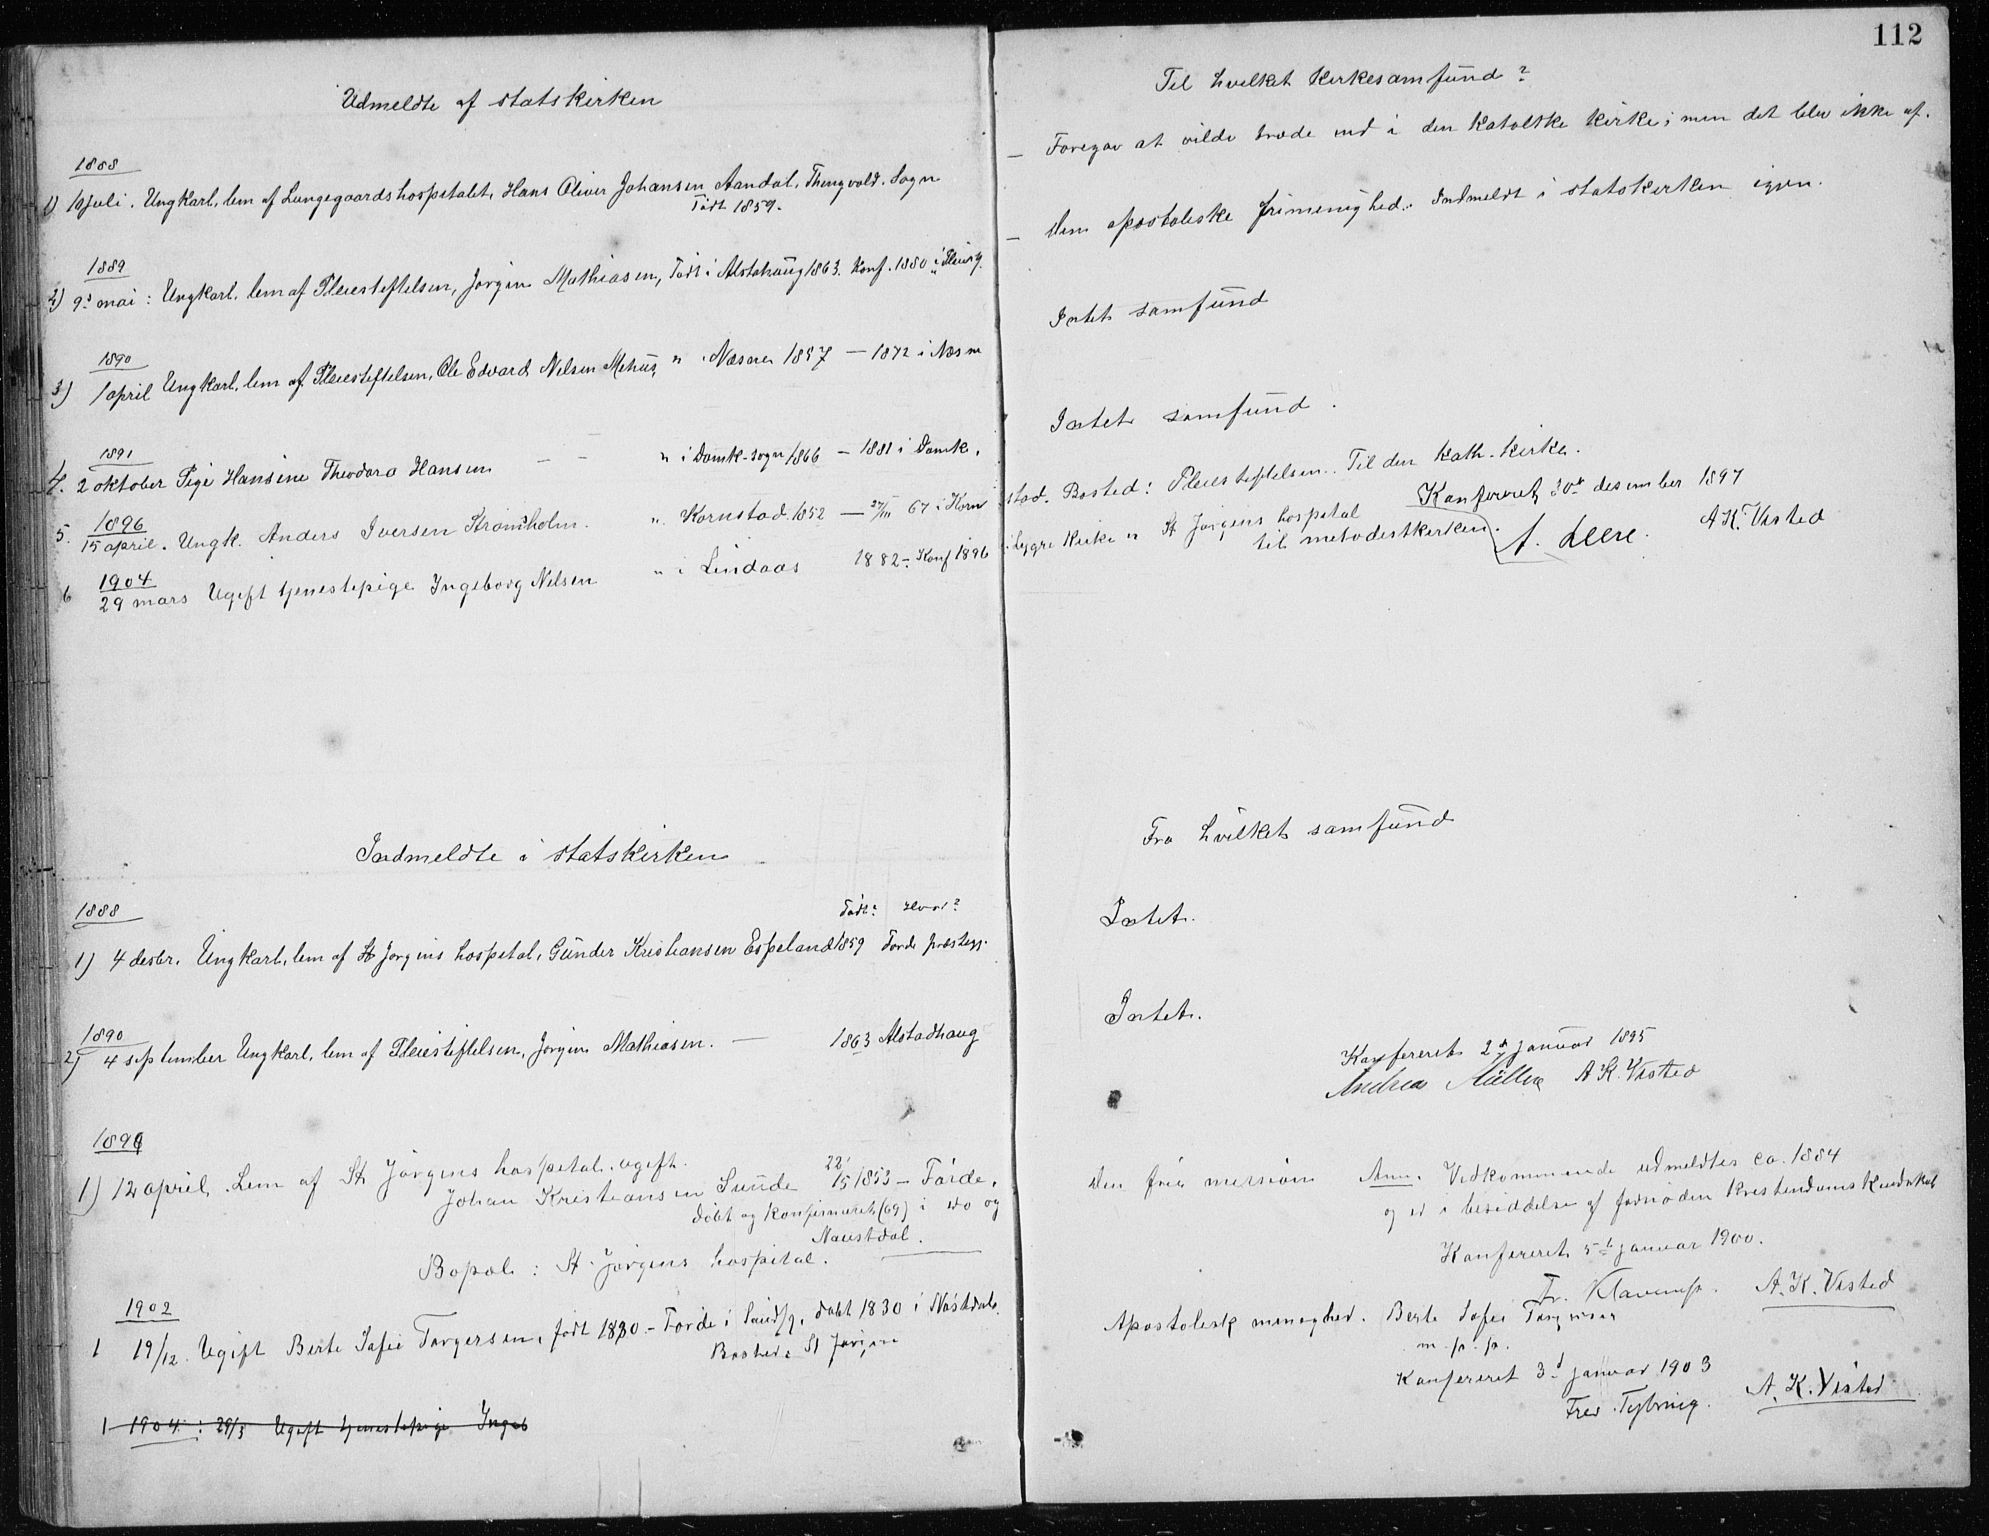 112
Udmeldte af statskirken
1888
1) 10 juli. Ungkarl, lem af Lungegaardshospitalet, Hans Oliver Johansen Aandal, Thingvold. Sogn
Født 1859.
1889
2) 9d mai: Ungkarl, lem af Pleiestiftelsen, Jørgen Mathiasen, Født i Alstahaug 1863. Konf. 1880 i Pleiestf.
1890
3) 1 april Ungkarl, lem af Pleiestiftelsen, Ole Edvard Nilsen Mehus, " i Næsne 1857 — 1872 i Næsne
1891
4. 2 oktober Pige Hansine Theodora Hansen — — " i Domk. sogn 1866 — 1881 i Domk.
1896
5. 15 april. Ungk. Anders Iversen Strømsholm. " Kornstad 1852 — 67 i Korn
1904
6 29 mars Ugift tjenestepige Ingeborg Nilsen " i Lindaas 1882 - Konf 1896
Til hvilket kirkesamfund?
— Foregav at vilde træde ind i den katolske kirke; men det blev ikke af.
— Den apostoliske frimenighed. Indmeldt i statskirken igjen.
Intet samfund
Intet samfund.
stad. Bosted: Pleiestiftelsen. Til den kath. kirke.
Konfereret 30te desember 1897
Lygre kirke " St Jørgens hospital
til metodistkirken. A. K. Visted
Indmeldte i statskirken
1888
Født? Hvor?
1) 4 desbr. Ungkarl, lem af St Jørgens hospital, Gunder Kristiansen Espeland 1859 Førde præstegj.
1890
2) 4 september Ungkarl, lem af Pleiestiftelsen, Jørgen Mathiasen. — 1863 Alstadhaug
1896
1) 12 april. Lem af St Jørgens hospital. ugift.
Johan Kristiansen Sunde 22/5 1853 — Førde,
døbt og konfirmeret (69) i do og
Naustdal.
Bopæl: St. Jørgens hospital.
1902
1 19/12. Ugift Berte Sofie Torgersen, født 1830 - Førde i Søndfj, døbt 1830 i Nøstdal.
Bosted: St Jørgen
1 1904: 29/3 Ugift tjenestepige Ingeb
Fra hvilket samfund
Intet.
Intet.
Konfereret 2d januar 1895
Andrea Müller A. K. Visted
Den frie mission Anm. Vedkommende udmeldtes ca. 1884
og er i besiddelse af fornøden Kristendomskundskab
Konfereret 5te januar 1900.
A. K. Visted
Apostolisk menighed. Berte Sofie Torgersen
m. p. p.
Konfereret 3d januar 1903
Fred. Tybring. A. K. Visted